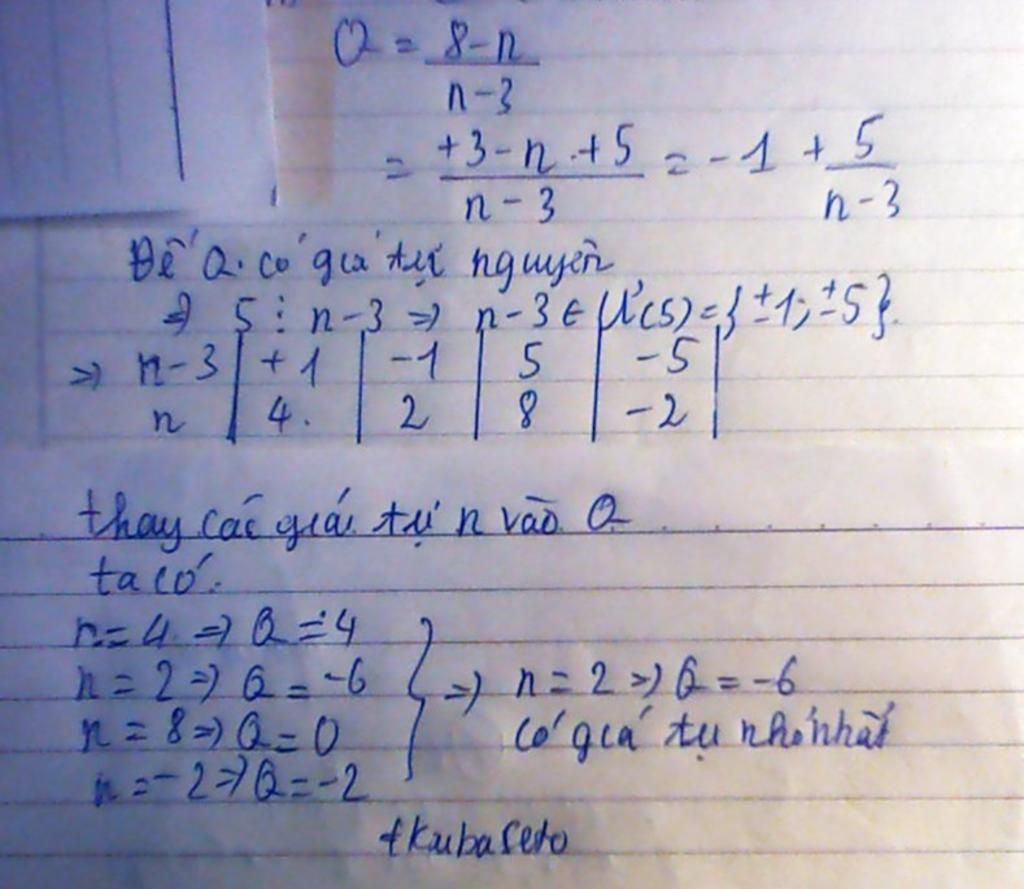 Q = 8-n / n-3
= +3-n+5 / n-3 = -1 + 5 / n-3
Để Q có giá trị nguyên
=> 5 ⋮ n-3 => n-3 ∈ Ư(5) = {±1; ±5}.
=> n-3 | +1 | -1 | 5 | -5 |
n | 4. | 2 | 8 | -2 |
thay các giá trị n vào Q
ta có:
n = 4 => Q = 4
n = 2 => Q = -6 => n = 2 => Q = -6
n = 8 => Q = 0 có giá trị nhỏ nhất
n = -2 => Q = -2